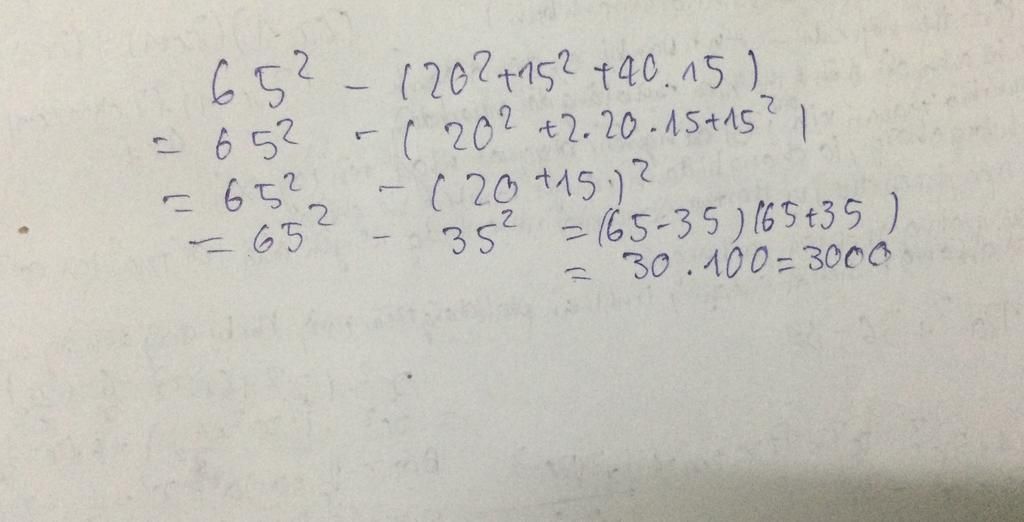 65² - (20²+15²+40.15)
= 65² - (20²+2.20.15+15²)
= 65² - (20+15)²
= 65² - 35² = (65-35)(65+35)
= 30.100=3000